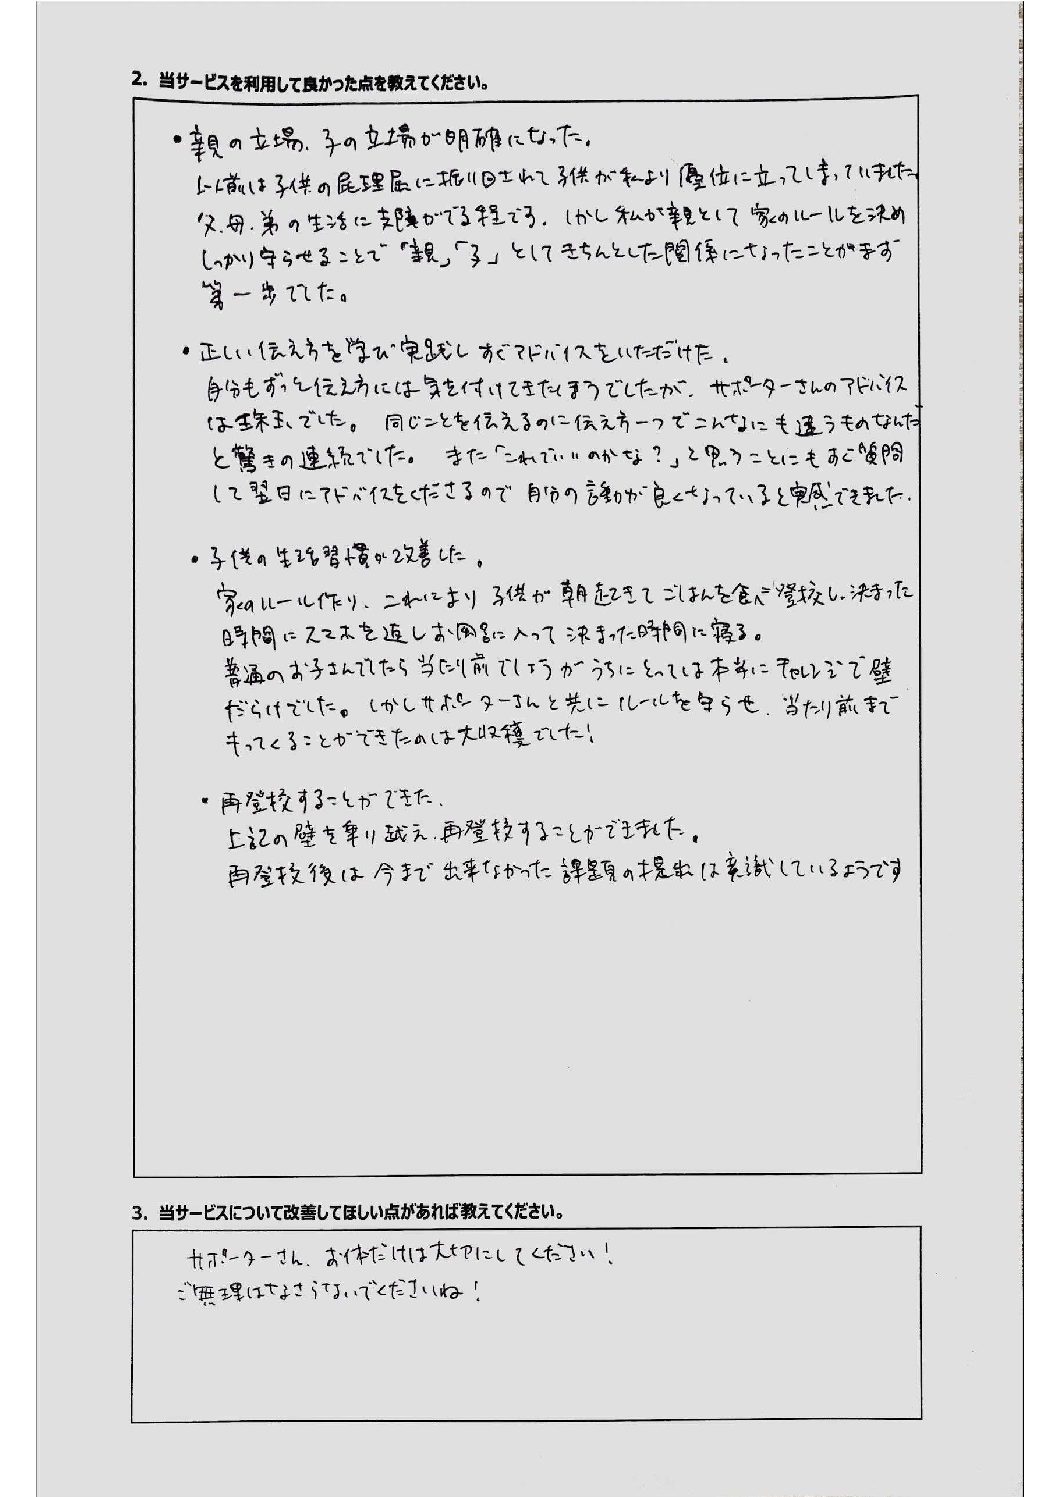 2. 当サービスを利用して良かった点を教えてください。
・親の立場、子の立場が明確になった。
以前は子供の屁理屈に振り回されて子供が私より優位に立ってしまっていました。
父、母、弟の生活に支障がでる程です。しかし私が親として家のルールを決め
しっかり守らせることで「親」「子」としてきちんとした関係になったことがまず
第一歩でした。
・正しい伝え方を学び実践しすぐアドバイスをいただけた。
自分もずっと伝え方には気を付けてきたほうでしたが、サポーターさんのアドバイス
は珠玉でした。 同じことを伝えるのに伝え方一つでこんなにも違うものなんだ
と驚きの連続でした。 また「これでいいのかな?」と思うことにもすぐ質問
して翌日にアドバイスをくださるので自分の言動が良くなっていると実感できました。
・子供の生活習慣が改善した。
家のルール作り、これにより子供が朝起きてごはんを食べ登校し、決まった
時間にスマホを返しお風呂に入って決まった時間に寝る。
普通のお子さんでしたら当たり前でしょうがうちにとっては本当にチャレンジで壁
だらけでした。しかしサポーターさんと共にルールを守らせ、当たり前まで
もってくることができたのは大収穫でした!
・再登校することができた。
上記の壁を乗り越え、再登校することができました。
再登校後は今まで出来なかった課題の提出は意識しているようです
3. 当サービスについて改善してほしい点があれば教えてください。
サポーターさん、お体だけは大切にしてください!
ご無理はなさらないでくださいね!